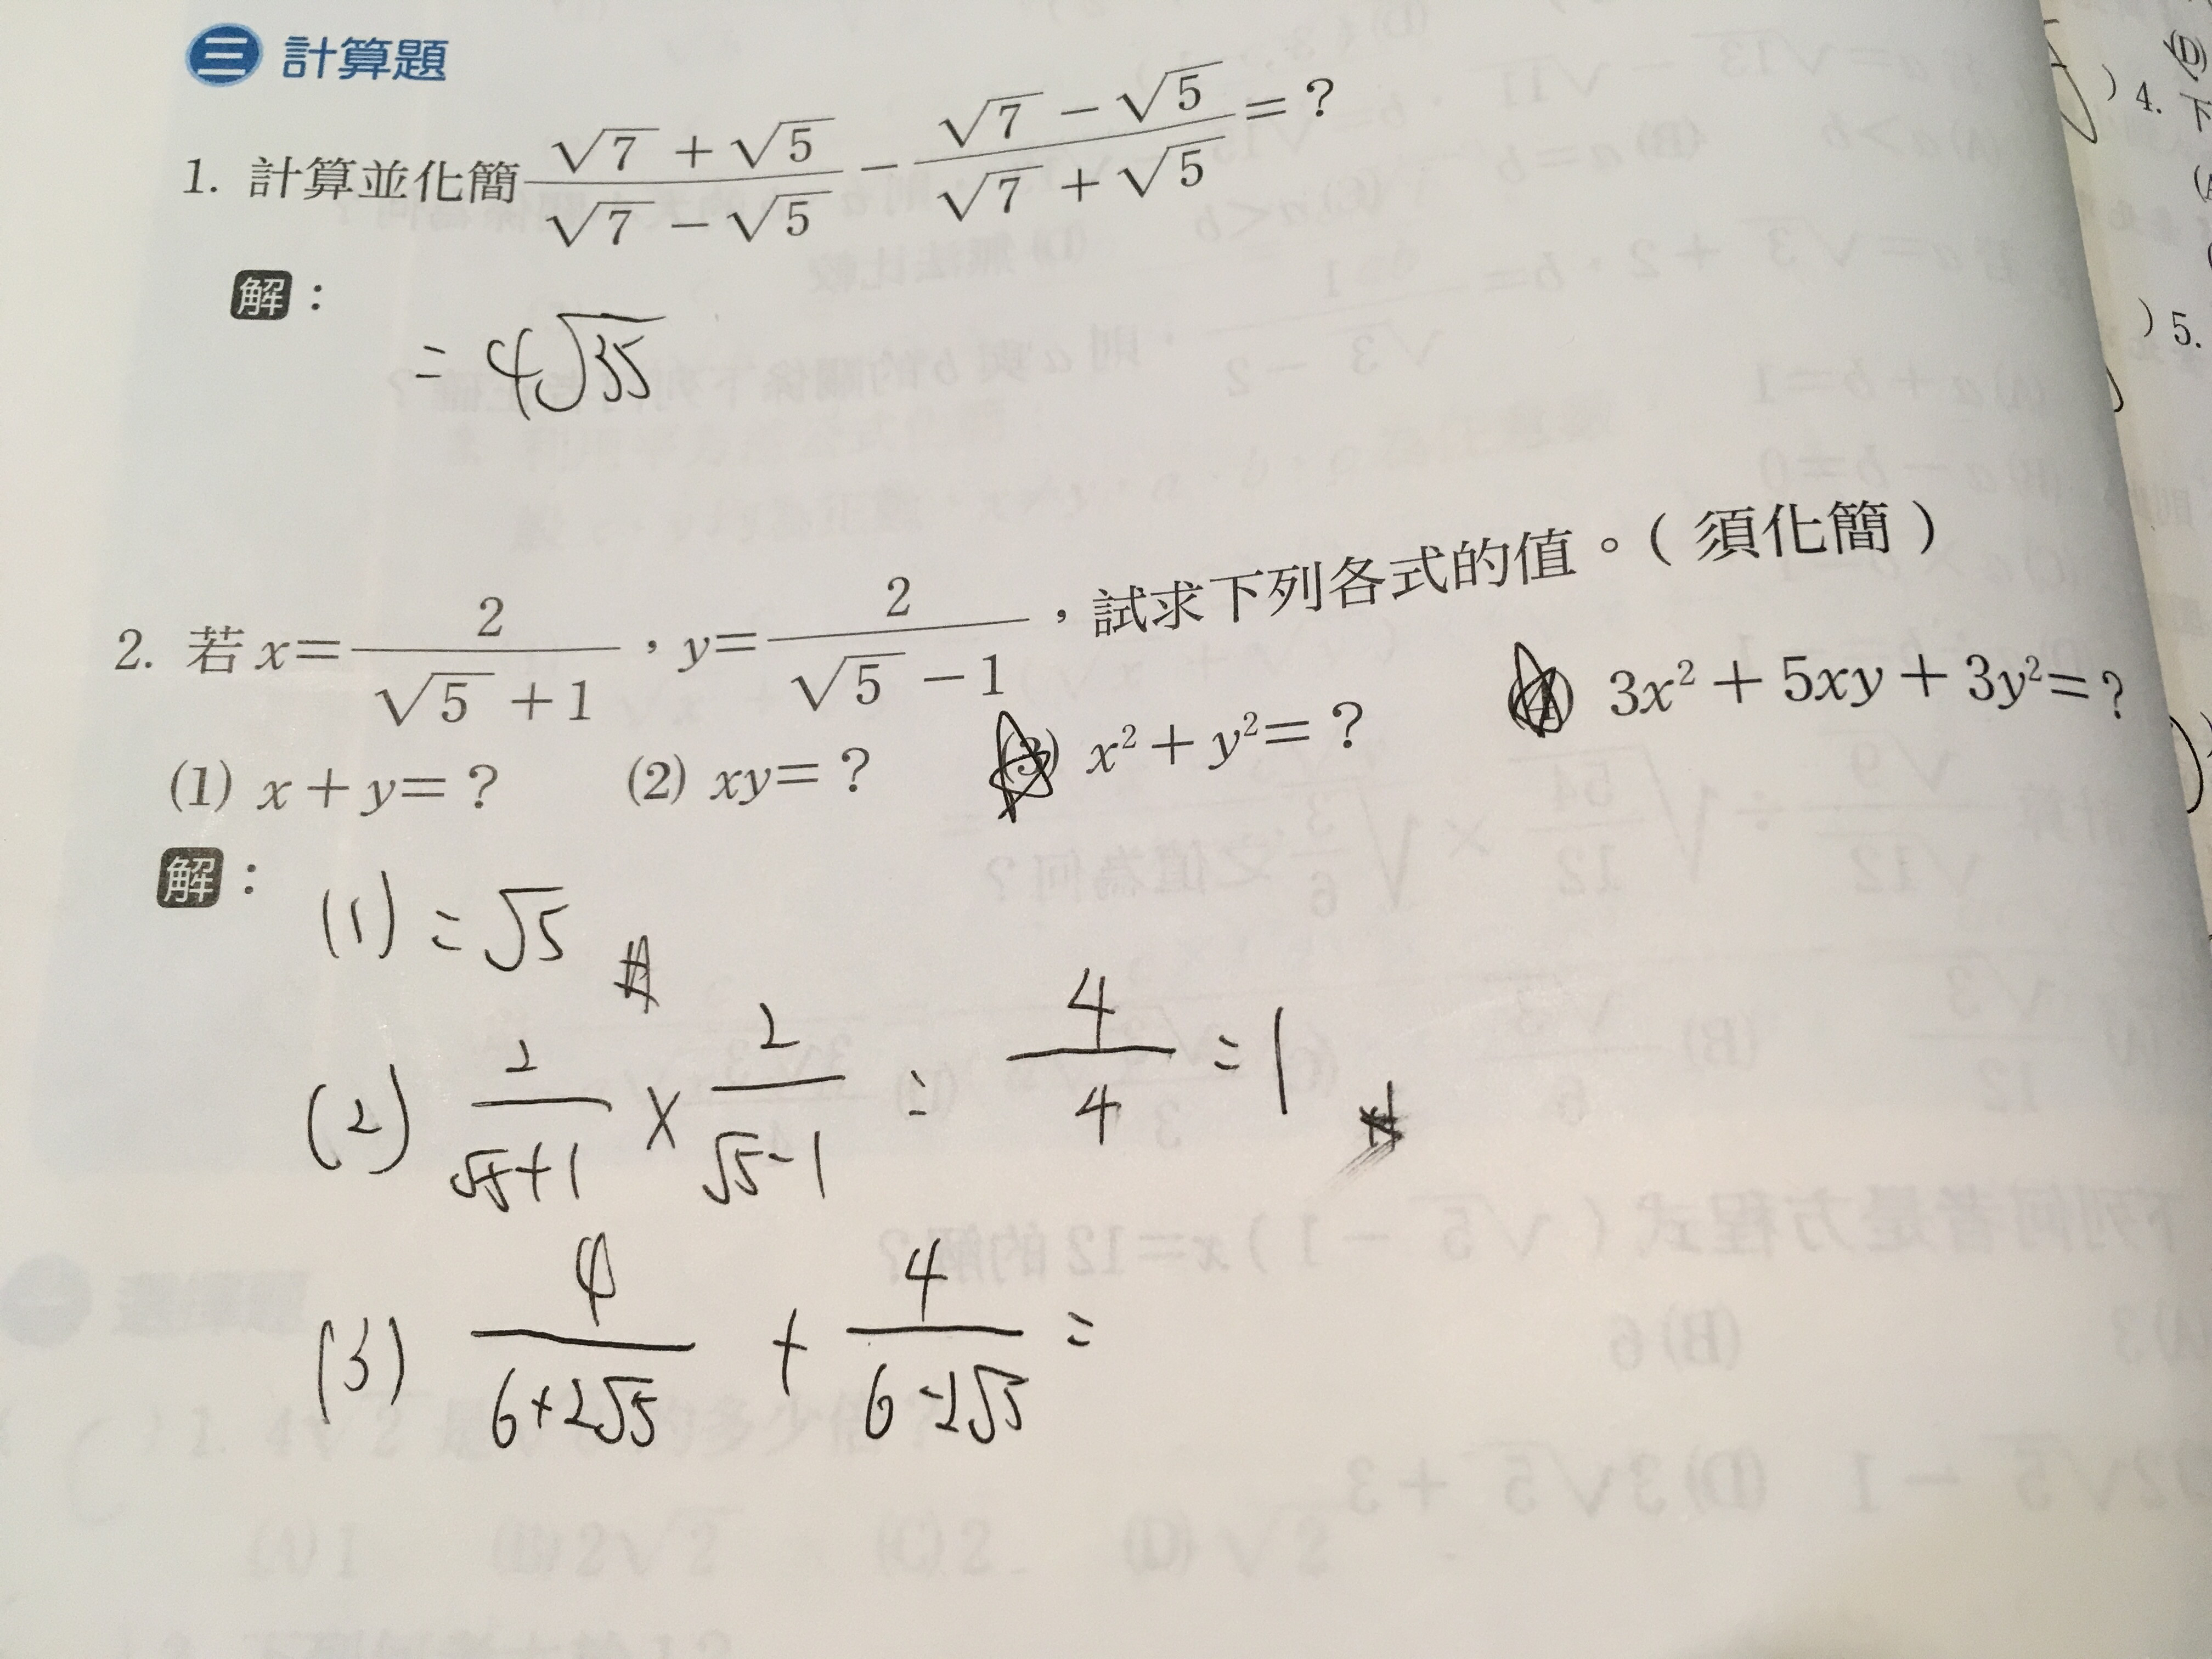 三 計算題
1. 計算並化簡 (√7 + √5)/(√7 − √5) − (√7 − √5)/(√7 + √5) = ?
解：
= 4√35
2. 若 x = 2/(√5 + 1)，y = 2/(√5 − 1)，試求下列各式的值。(須化簡)
(1) x + y = ? (2) xy = ? (3) x² + y² = ? 3x² + 5xy + 3y² = ?
解：
(1) = √5
(2) 2/(√5+1) × 2/(√5−1) = 4/4 = 1
(3) 4/(6+2√5) + 4/(6−2√5) =
) 4.
) 5.